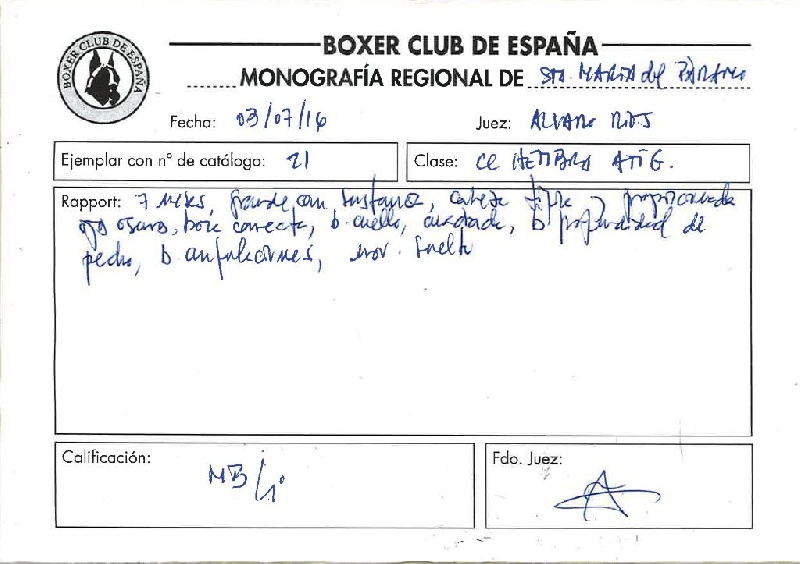 BOXER CLUB DE ESPAÑA
BOXER CLUB DE ESPAÑA
MONOGRAFÍA REGIONAL DE Sta. MARIA del PARAMO
Fecha: 03/07/16
Juez: ALVARO RIOS
Ejemplar con nº de catálogo: 21
Clase: CC HEMBRAS ATIG.
Rapport: 7 meses, grande con sustancia, cabeza tipica y proporcionada
ojo oscuro, boca correcta, b. cuello, cuadrada, b profundidad de
pecho, b. angulaciones, mov. suelto
Calificación: MB/1º
Fdo. Juez: